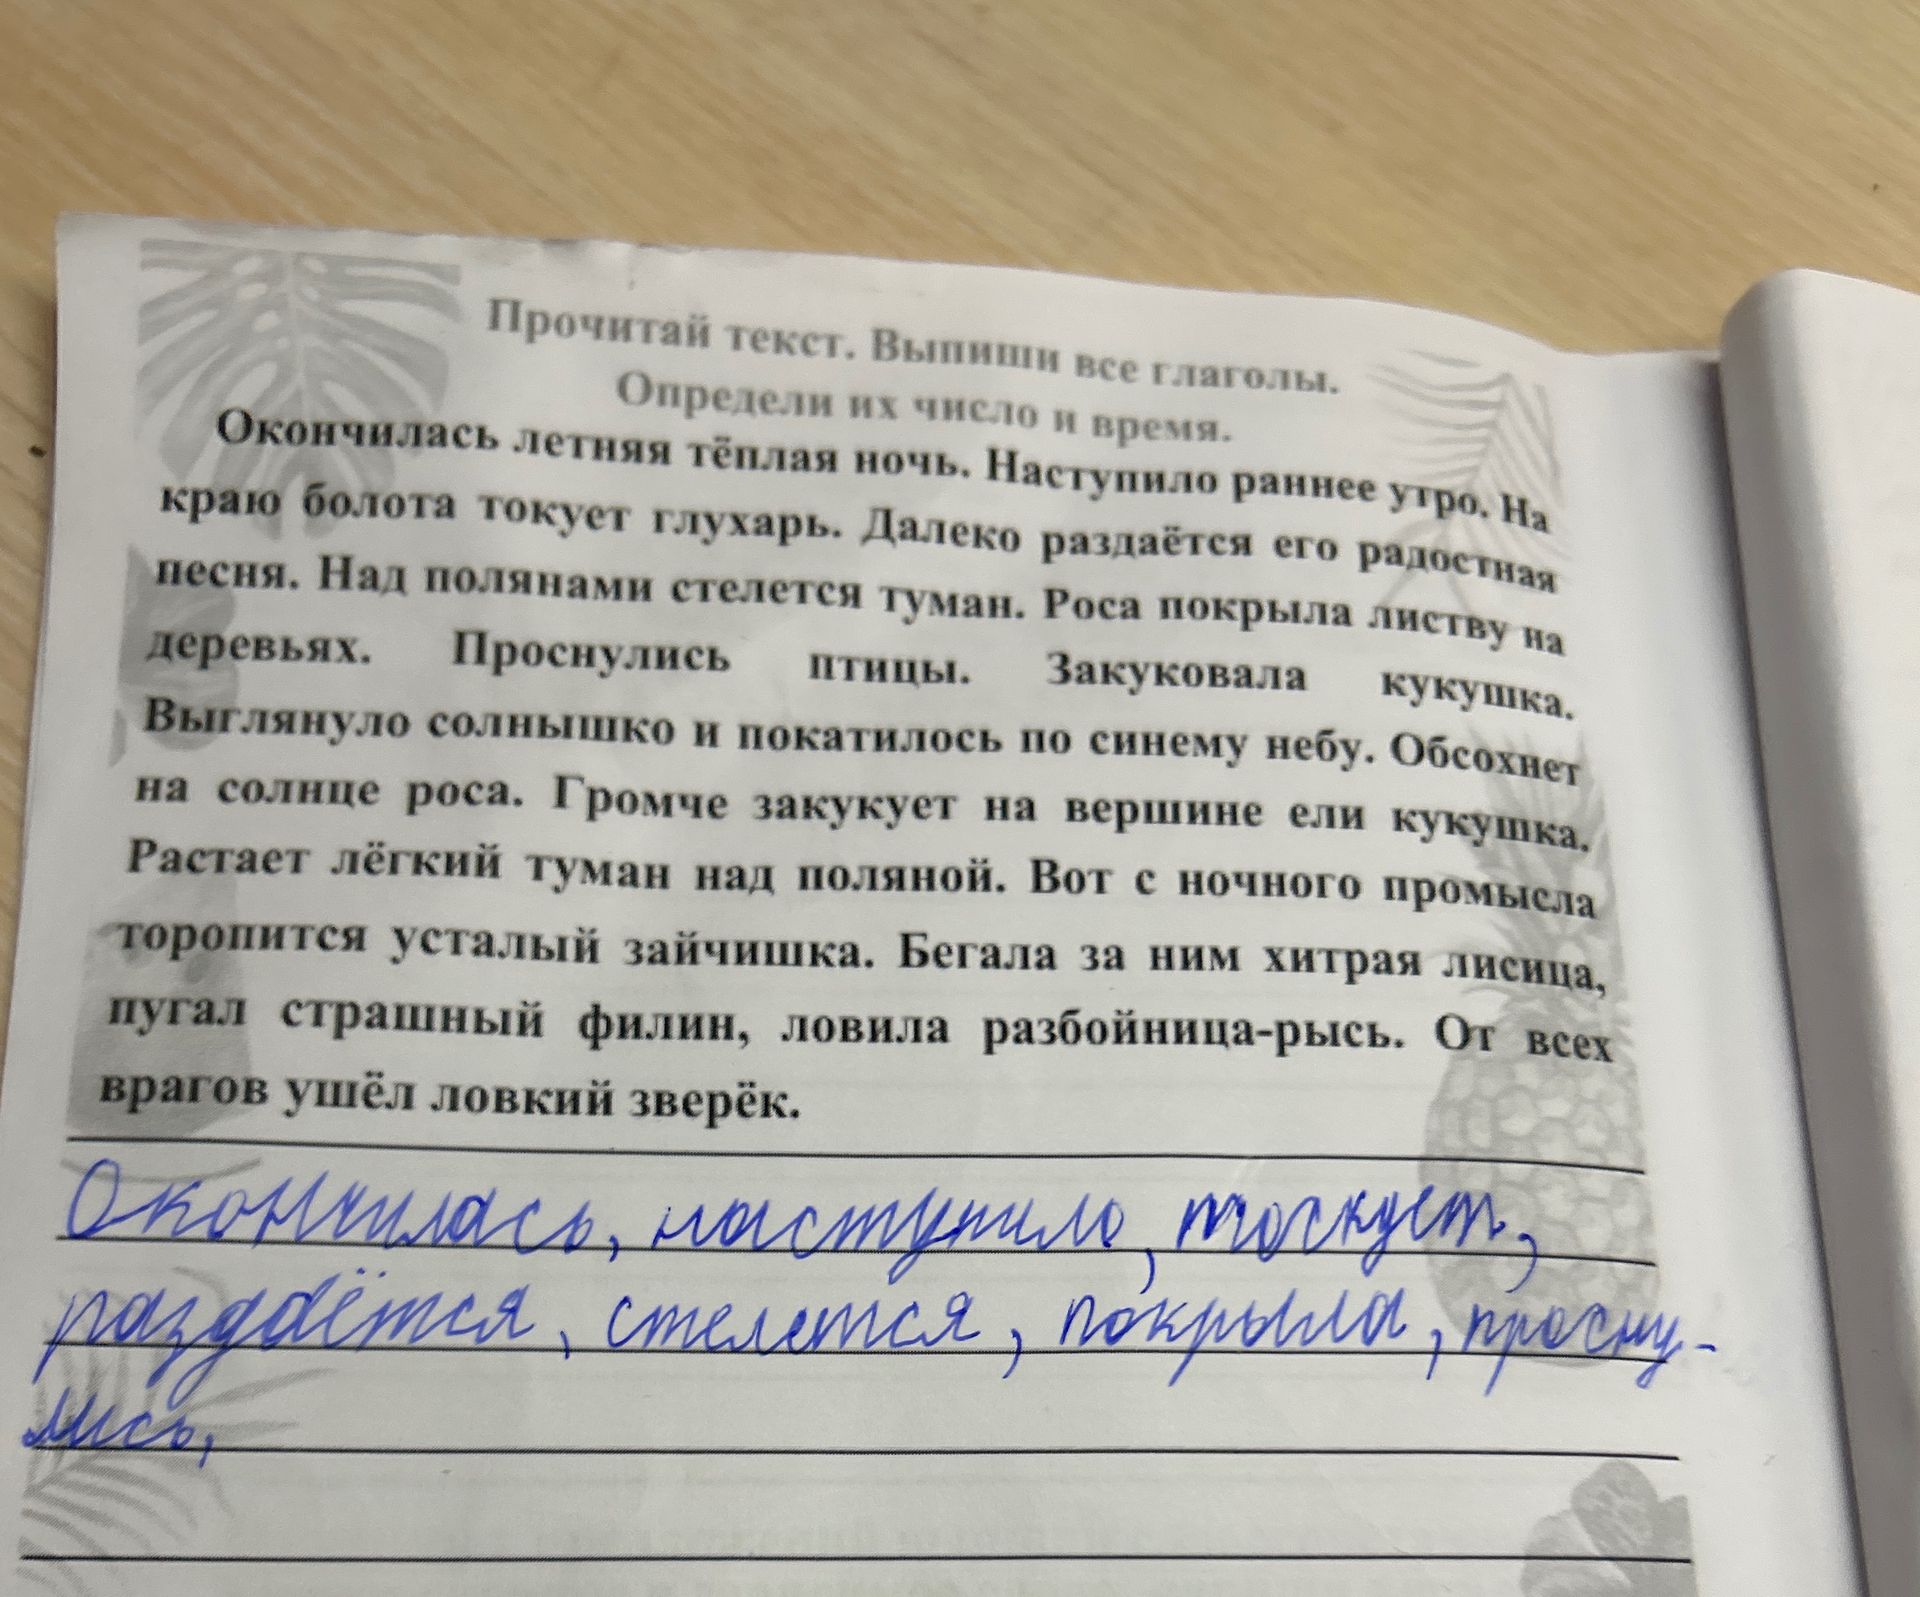 Прочитай текст. Выпиши все глаголы.
Определи их число и время.
Окончилась летняя тёплая ночь. Наступило раннее утро. На
краю болота токует глухарь. Далеко раздаётся его радостная
песня. Над полянами стелется туман. Роса покрыла листву на
деревьях. Проснулись птицы. Закуковала кукушка.
Выглянуло солнышко и покатилось по синему небу. Обсохнет
на солнце роса. Громче закукует на вершине ели кукушка.
Растает лёгкий туман над поляной. Вот с ночного промысла
торопится усталый зайчишка. Бегала за ним хитрая лисица,
пугал страшный филин, ловила разбойница-рысь. От всех
врагов ушёл ловкий зверёк.
Окончилась, наступило, тоскует,
раздаётся, стелется, покрыла, просну-
лись,